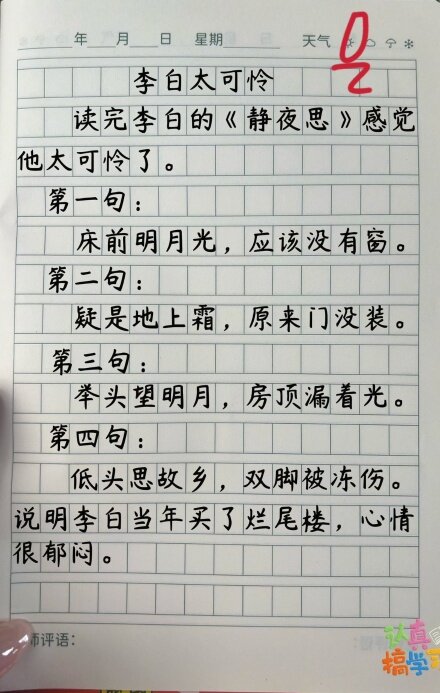 年 月 日 星期 天气
李白太可怜
读完李白的《静夜思》感觉
他太可怜了。
第一句：
床前明月光，应该没有窗。
第二句：
疑是地上霜，原来门没装。
第三句：
举头望明月，房顶漏着光。
第四句：
低头思故乡，双脚被冻伤。
说明李白当年买了烂尾楼，心情
很郁闷。
师评语：
认真
搞学